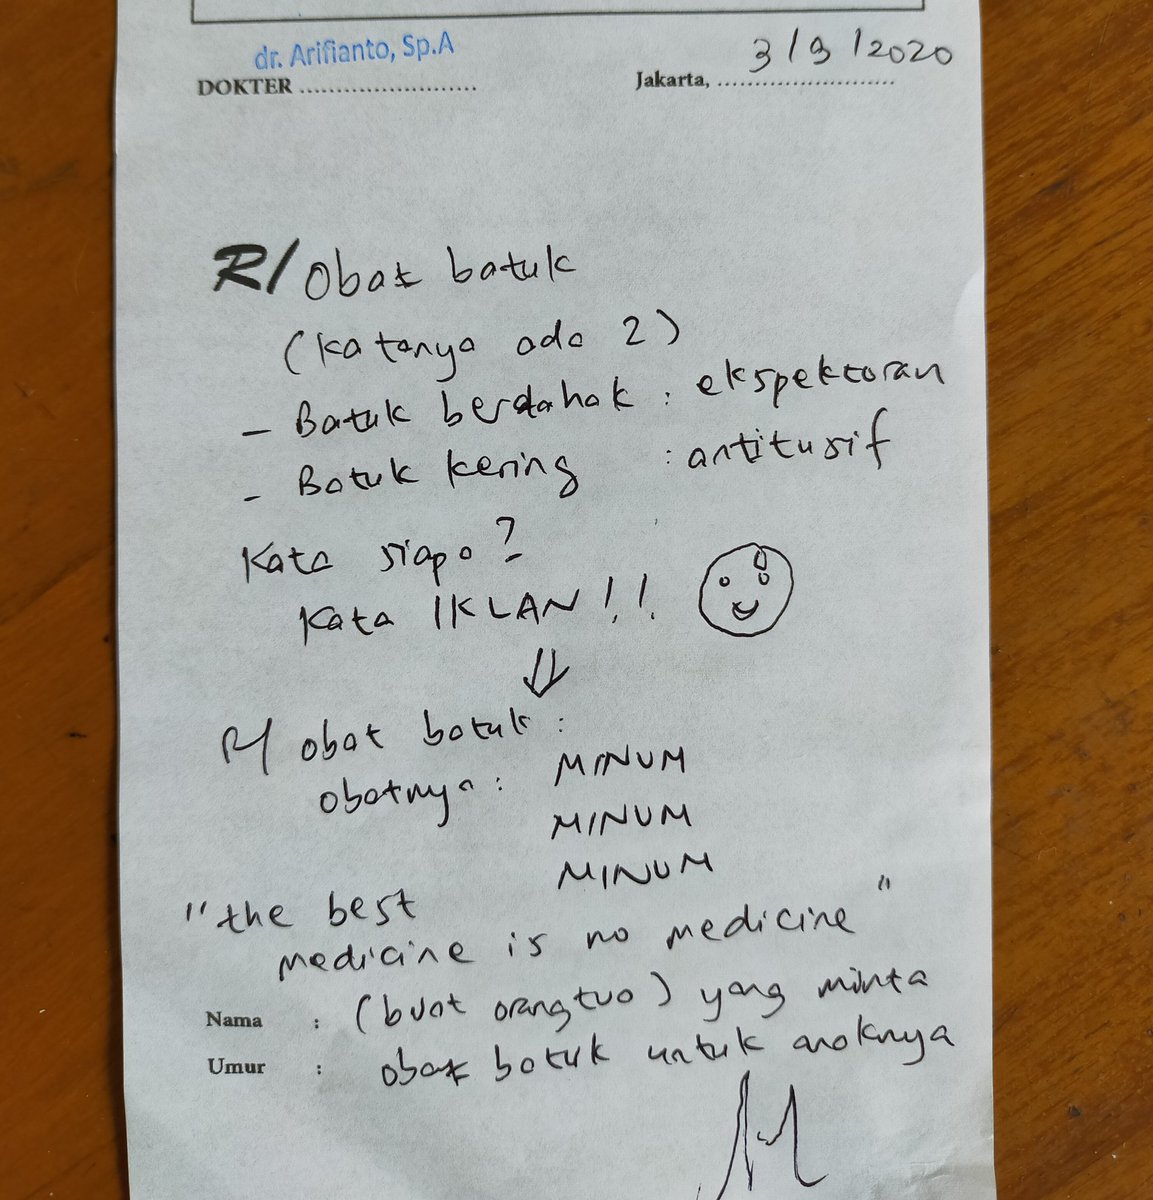 dr. Arifianto, Sp.A
DOKTER ............................
Jakarta, ............................ 3/9/2020
R/ Obat batuk
(katanya ada 2)
- Batuk berdahak : ekspektoran
- Batuk kering : antitusif
Kata siapa?
Kata IKLAN!!
R/ obat batuk :
obatnya : MINUM
MINUM
MINUM
"the best
medicine is no medicine"
Nama : (buat orangtua) yang minta
Umur : obat batuk untuk anaknya